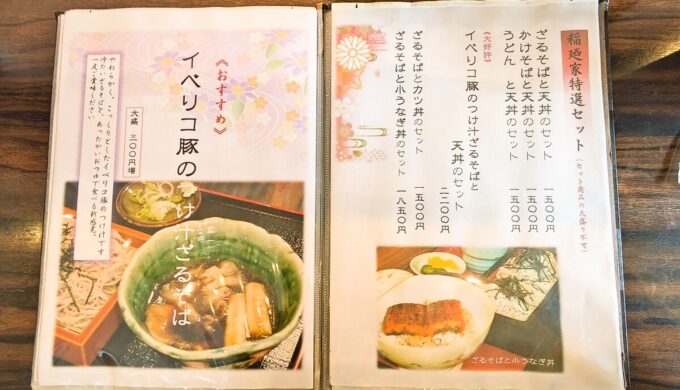 稲廼家特選セット
(セット商品の大盛り不可)
ざるそばと天丼のセット 一五〇〇円
かけそばと天丼のセット 一五〇〇円
うどん と天丼のセット 一五〇〇円
(大好評)
イベリコ豚のつけ汁ざるそばと
天丼のセット 二二〇〇円
ざるそばとカツ丼のセット 一五〇〇円
ざるそばと小うなぎ丼のセット 一八五〇円
ざるそばと小うなぎ丼
《おすすめ》
イベリコ豚のつけ汁ざるそば
大盛 三〇〇円増
やわらかく、こっくりとしたイベリコ豚のつけ汁です
冷たいざるそばを、あったかいおつゆで食べる新感覚。
一度ご賞味ください